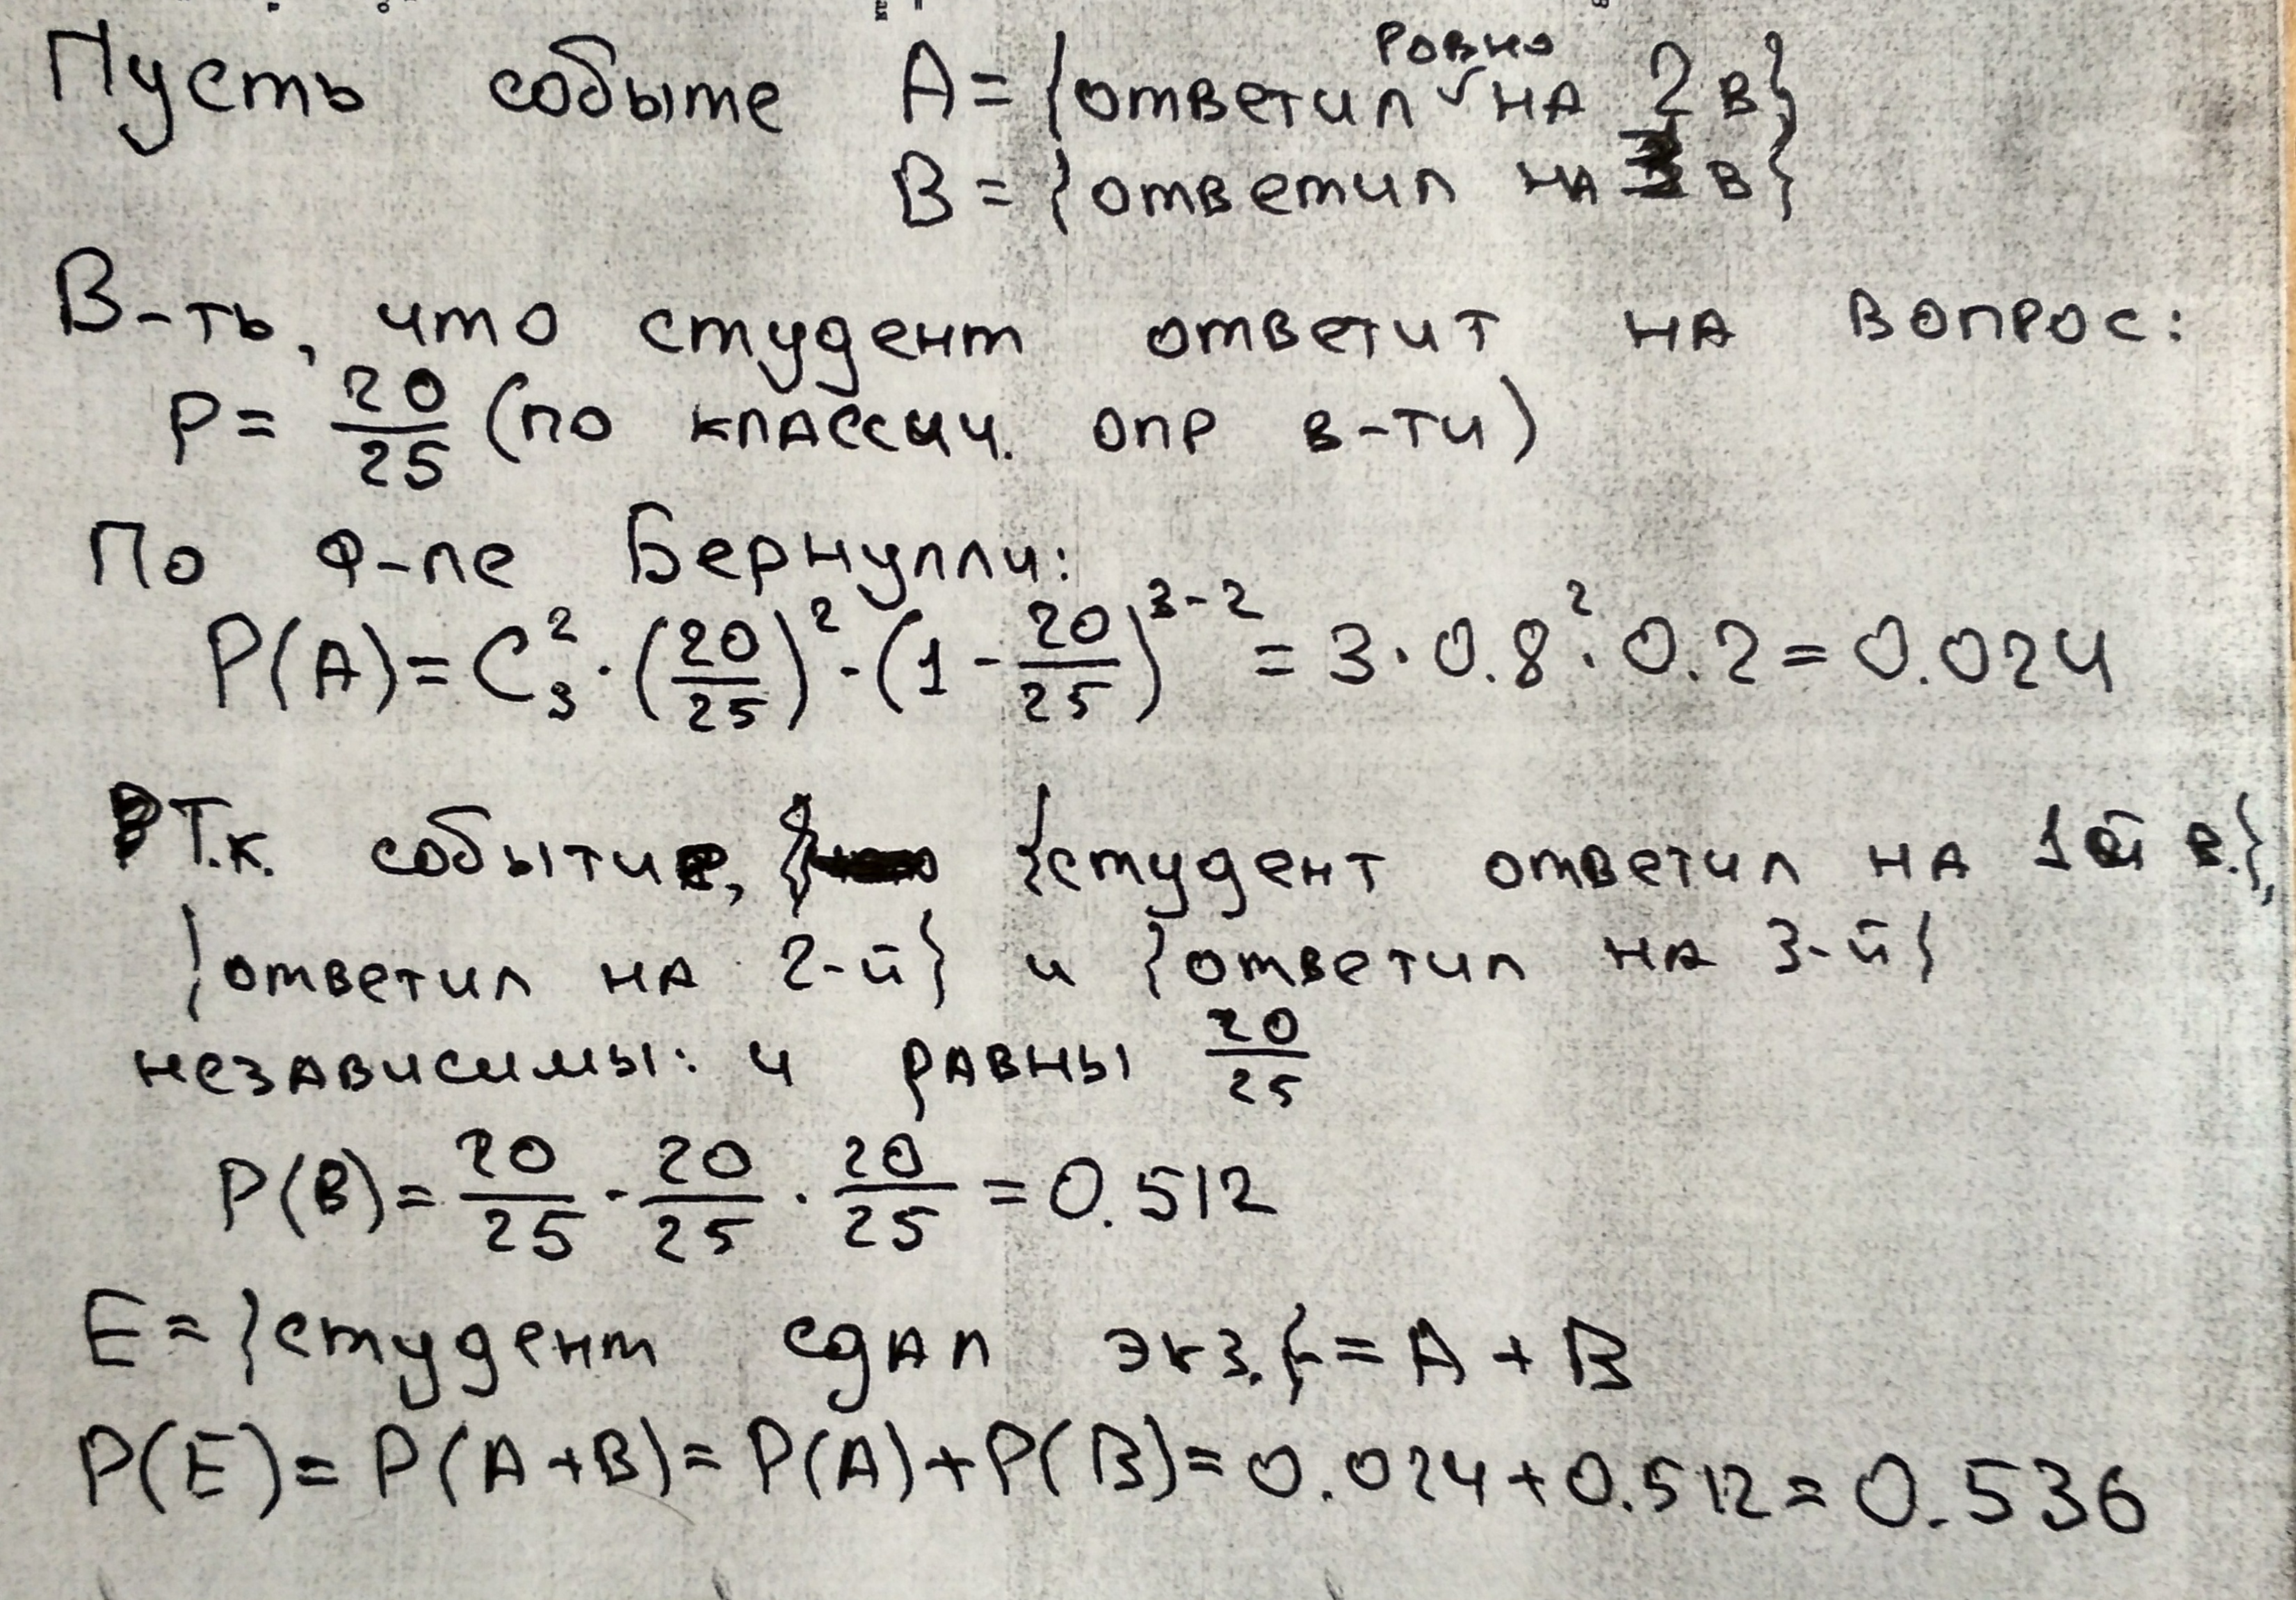 Пусть событие A = {ответил ровно на 2 в}
B = {ответил на 3 в}
В-ть, что студент ответит на вопрос:
P = 20/25 (по классич. опр в-ти)
По ф-ле Бернулли:
P(A) = C₃² · (20/25)² · (1 - 20/25)³⁻² = 3 · 0.8² · 0.2 = 0.024
Т.к. событие, {студент ответил на 1й в.},
{ответил на 2-й} и {ответил на 3-й}
независимы: и равны 20/25
P(B) = 20/25 · 20/25 · 20/25 = 0.512
E = {студент сдал экз.} = A + B
P(E) = P(A+B) = P(A) + P(B) = 0.024 + 0.512 = 0.536